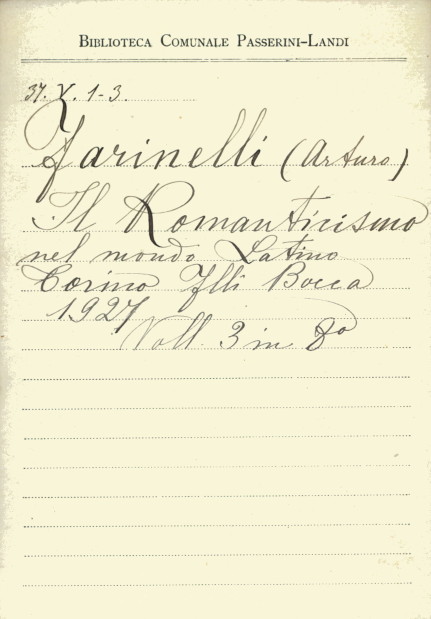 BIBLIOTECA COMUNALE PASSERINI-LANDI
37. X. 1-3.
Farinelli (Arturo)
Il Romanticismo
nel mondo Latino
Torino Flli Bocca
1927
Voll. 3 in 8º